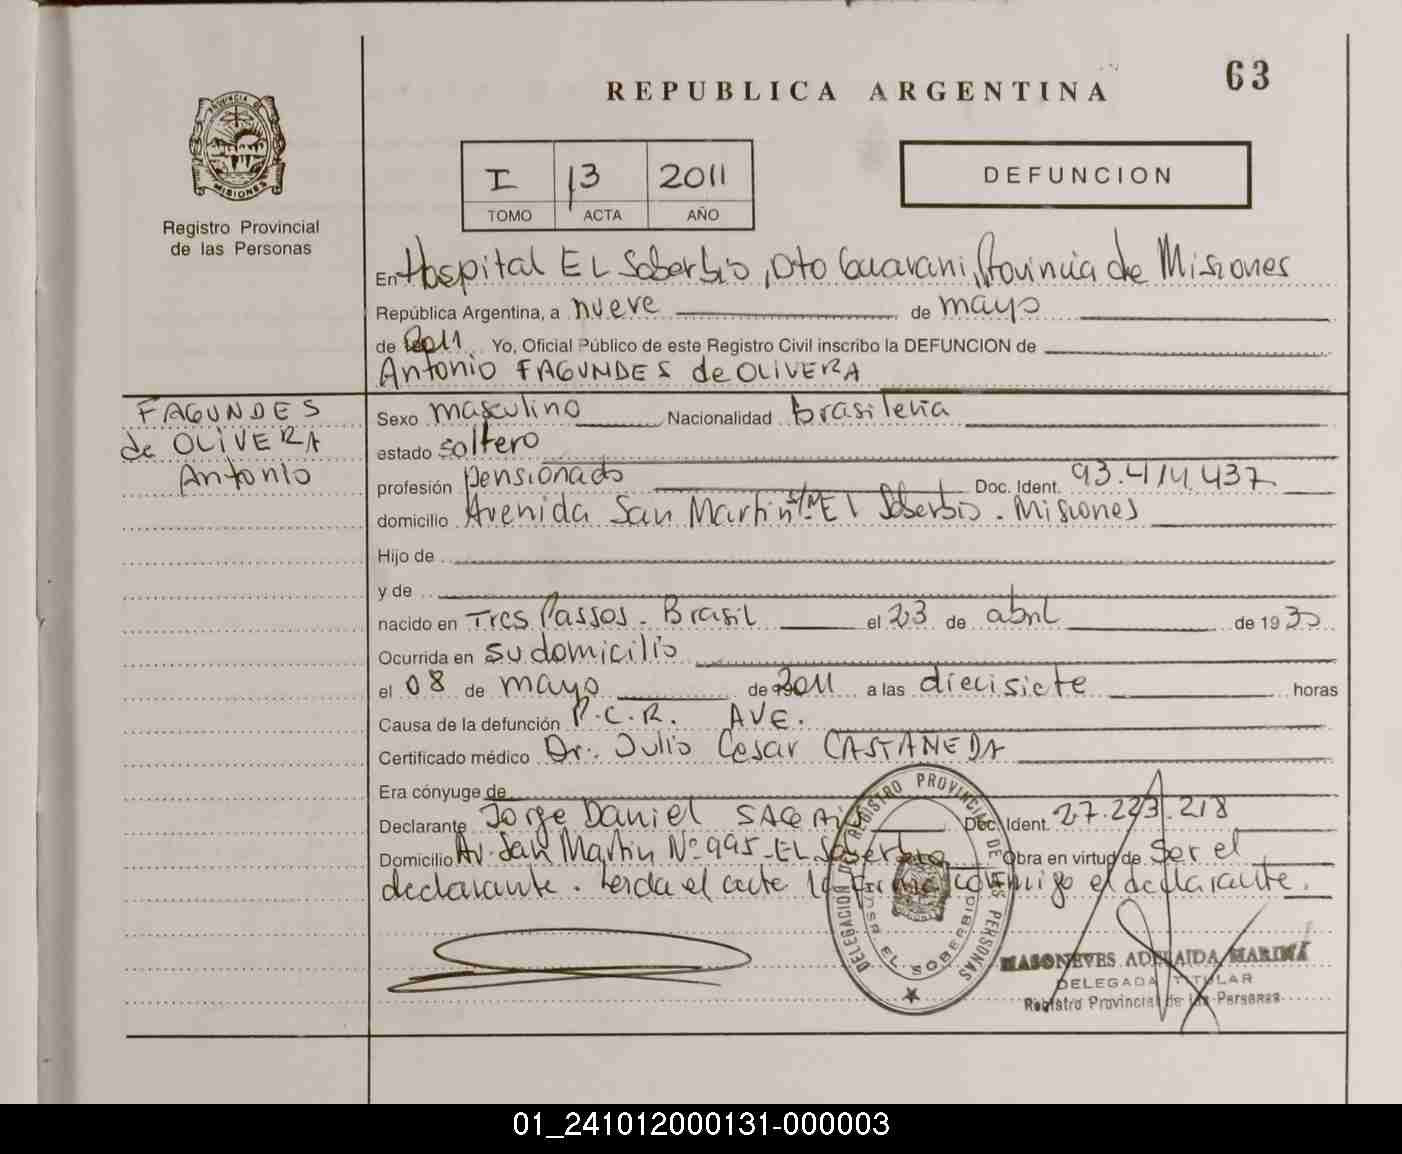 63
REPUBLICA ARGENTINA
PROVINCIA DE
MISIONES
Registro Provincial
de las Personas
I 13 2011
TOMO ACTA AÑO
DEFUNCION
En Hospital EL Soberbio, Dto Guarani, Provincia de Misiones
República Argentina, a nueve de mayo
de 2011 Yo, Oficial Público de este Registro Civil inscribo la DEFUNCION de
Antonio FAGUNDES de OLIVERA
FAGUNDES
de OLIVERA
Antonio
Sexo masculino Nacionalidad brasileña
estado soltero
profesión pensionado Doc. Ident. 93.414.437
domicilio Avenida San Martin S/Nº El Soberbio - Misiones
Hijo de
y de
nacido en Tres Passos - Brasil el 23 de abril de 19
Ocurrida en su domicilio
el 08 de mayo de 2011 a las diecisiete horas
Causa de la defunción P.C.R. AVE.
Certificado médico Dr. Julio Cesar CASTAÑEDA
Era cónyuge de
Declarante Jorge Daniel Doc. Ident. 27.223.218
Domicilio Av. San Martin Nº 995 - EL Soberbio Obra en virtud de ser el
declarante. Leida el acta la firma conmigo el declarante.
DELEGACIÓN DE REGISTRO PROVINCIAL DE LAS PERSONAS
EL SOBERBIO
MASONEVES ADELAIDA MARINA
DELEGADA TITULAR
Registro Provincial de las Personas
01_241012000131-000003